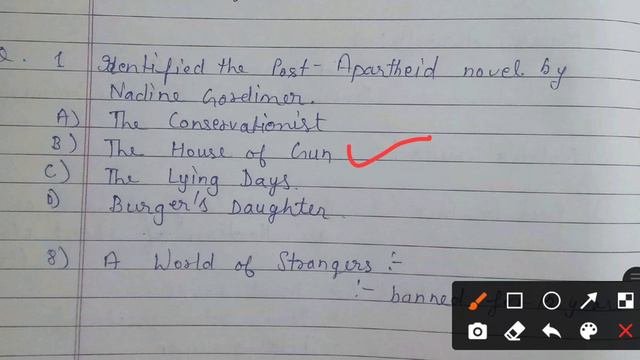 Q. 1 Identified the Post-Apartheid novel by
Nadine Gordimer.
A) The Conservationist
B) The House of Gun
C) The Lying Days.
D) Burger's Daughter.
8) A World of Strangers :-
:- banned